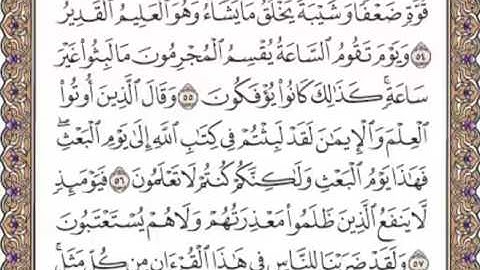 قُوَّةٍ ضَعْفًا وَشَيْبَةً يَخْلُقُ مَا يَشَاءُ وَهُوَ الْعَلِيمُ الْقَدِيرُ
۝٥٤ وَيَوْمَ تَقُومُ السَّاعَةُ يُقْسِمُ الْمُجْرِمُونَ مَا لَبِثُوا غَيْرَ
سَاعَةٍ ۚ كَذَٰلِكَ كَانُوا يُؤْفَكُونَ ۝٥٥ وَقَالَ الَّذِينَ أُوتُوا
الْعِلْمَ وَالْإِيمَانَ لَقَدْ لَبِثْتُمْ فِي كِتَابِ اللَّهِ إِلَىٰ يَوْمِ الْبَعْثِ ۖ
فَهَٰذَا يَوْمُ الْبَعْثِ وَلَٰكِنَّكُمْ كُنْتُمْ لَا تَعْلَمُونَ ۝٥٦ فَيَوْمَئِذٍ
لَا يَنْفَعُ الَّذِينَ ظَلَمُوا مَعْذِرَتُهُمْ وَلَا هُمْ يُسْتَعْتَبُونَ
۝٥٧ وَلَقَدْ ضَرَبْنَا لِلنَّاسِ فِي هَٰذَا الْقُرْءَانِ مِنْ كُلِّ مَثَلٍ ۚ